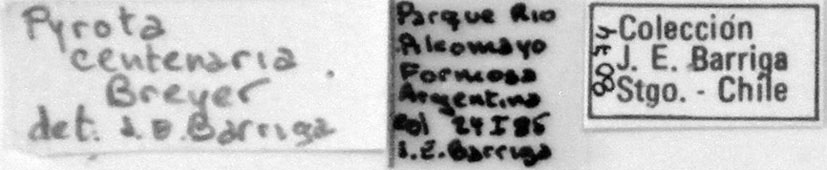 Pyrota
centenaria
Breyer
det. J. E. Barriga
Parque Rio
Pilcomayo
Formosa
Argentina
col 24 I 86
J. E. Barriga
Colección
J. E. Barriga
Stgo. - Chile